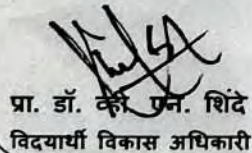 प्रा. डॉ. व्ही. एन. शिंदे
विदयार्थी विकास अधिकारी